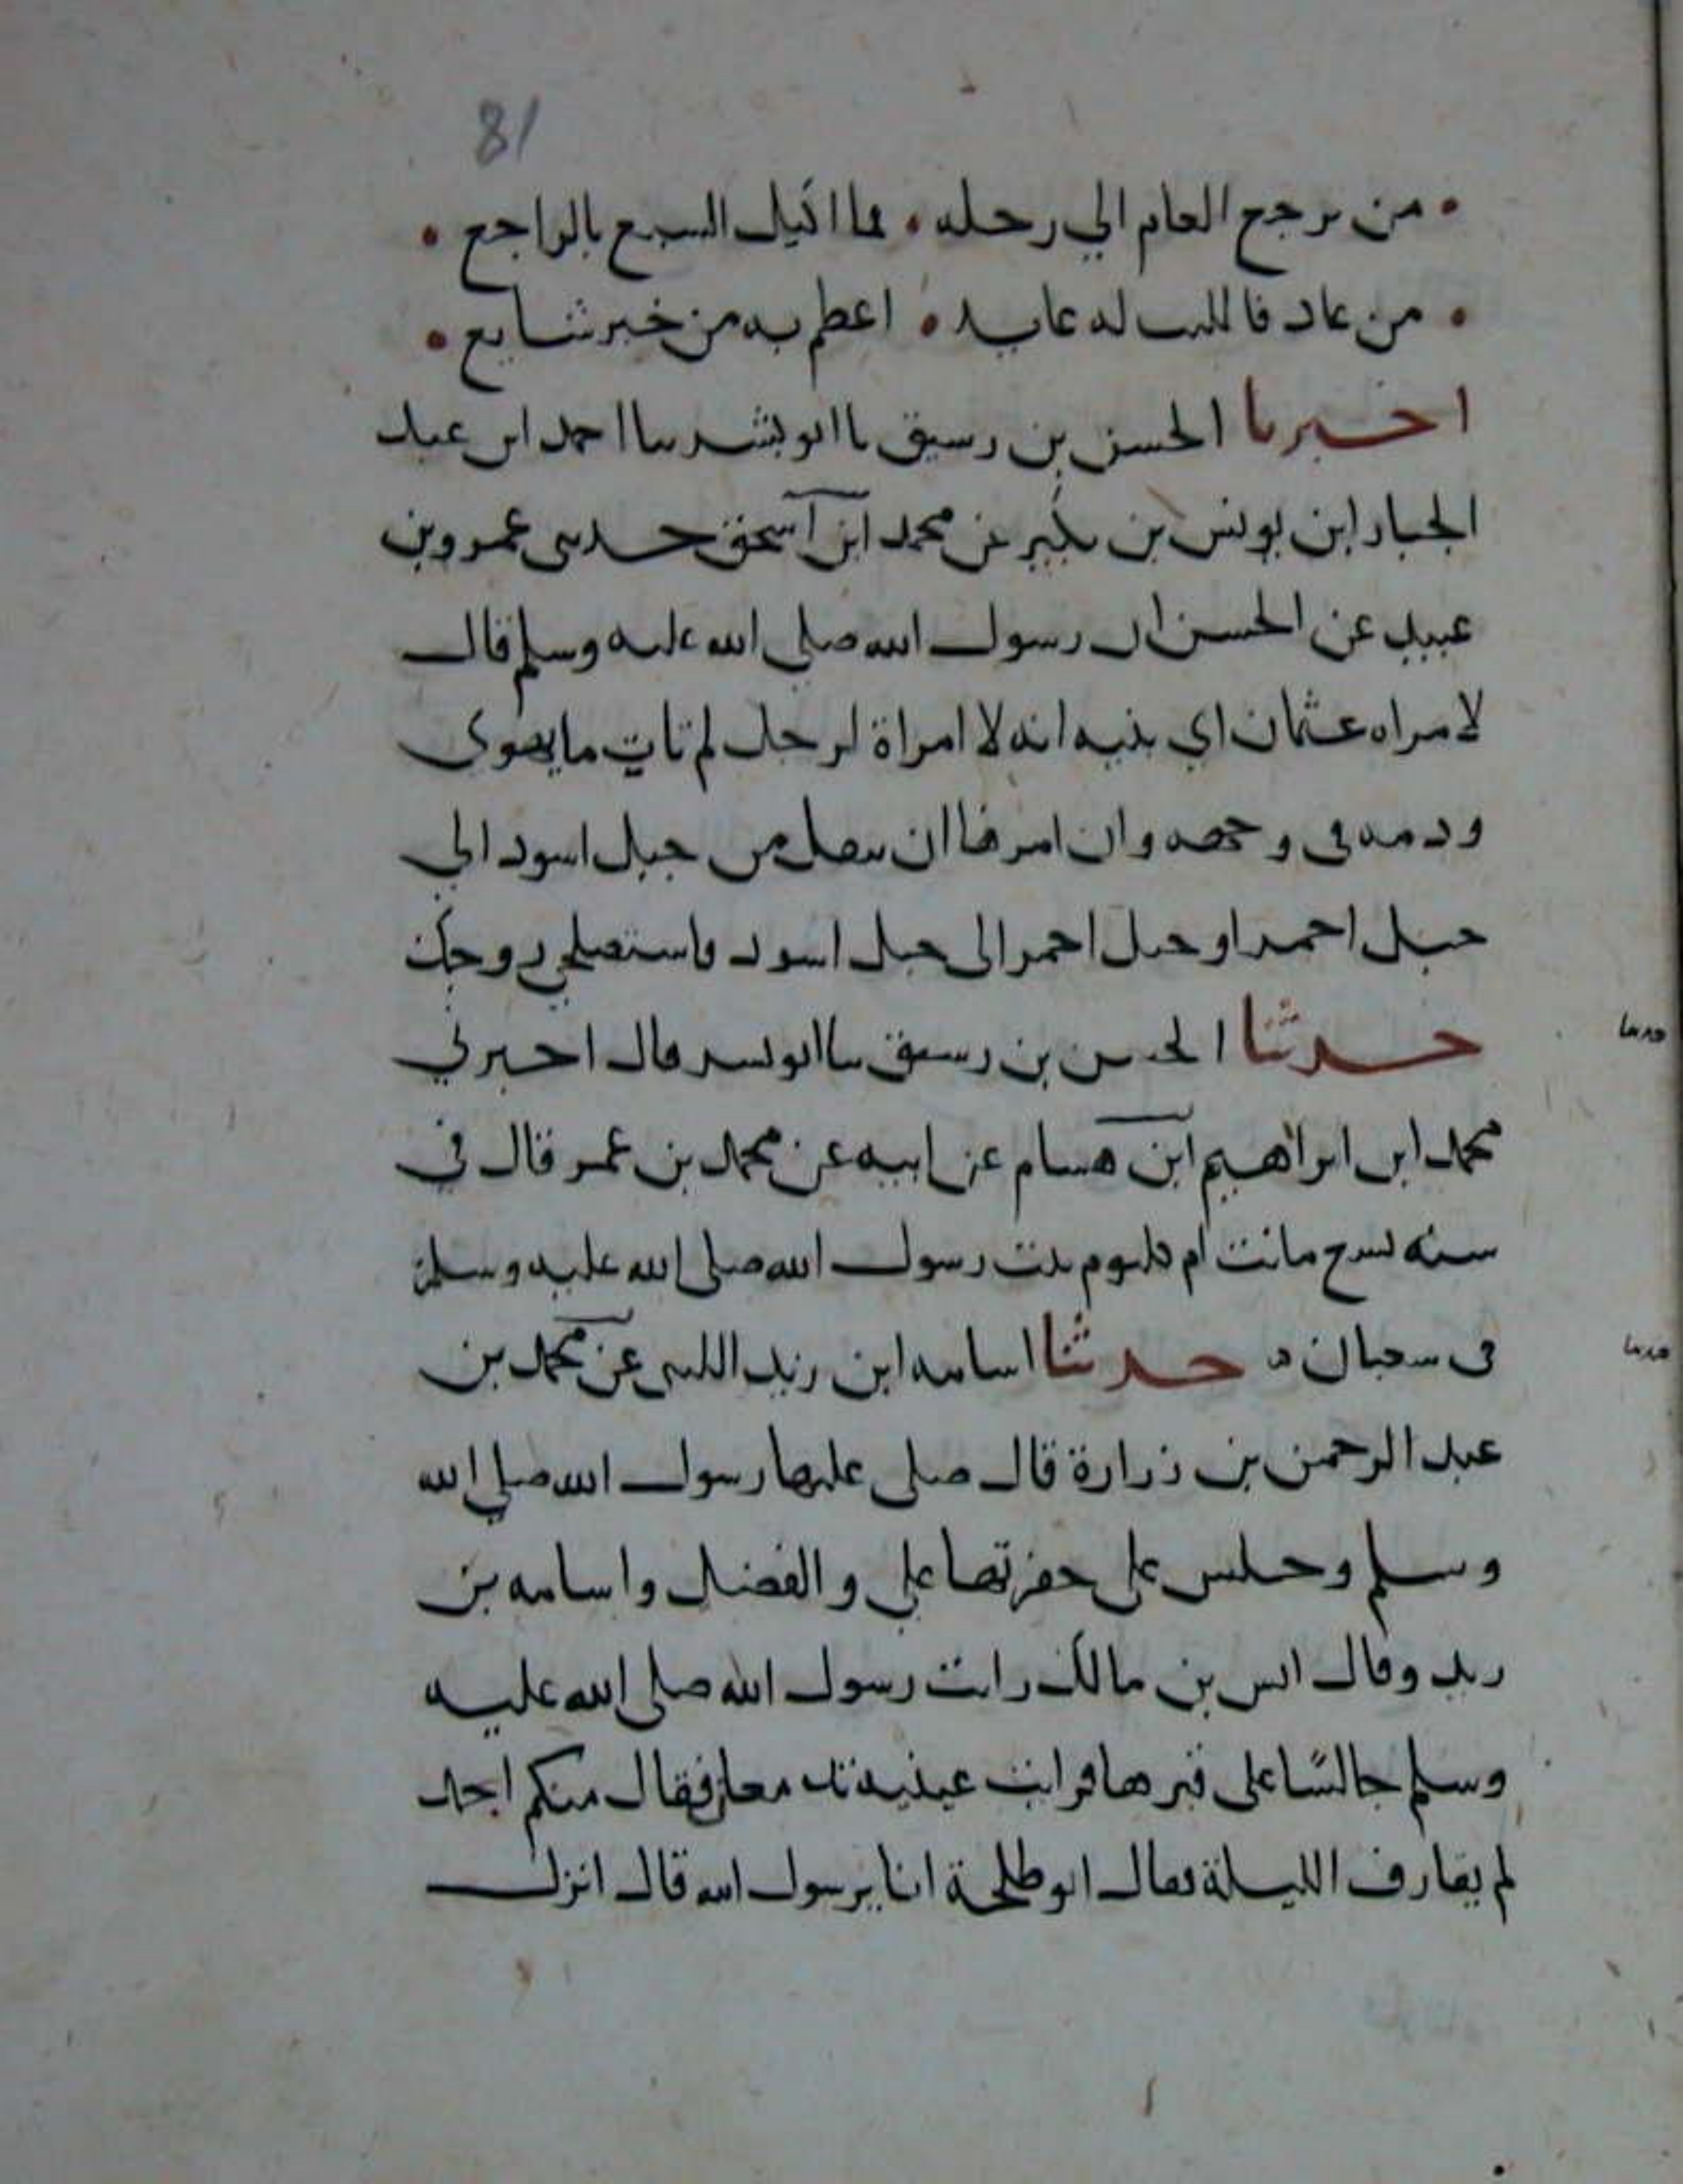 81
• من يرجع العام الي رحله • فما اكيل السبع بالراجع •
• من عاد فالليث له عايد • اعظم به من خبر شايع •
اخبرنا الحسن بن رسيق نا ابو بشر نا احمد ابن عبد
الجبار ابن يونس بن بكير عن محمد ابن اسحق حدثني عمرو بن
عبيد عن الحسن ان رسول الله صلي الله عليه وسلم قال
لامراه عثمان اي بنيه انه لا امراة لرجل لم تات ما يهوى
وذمه في وجهه وان امرها ان تنقل من جبل اسود الي
جبل احمر او جبل احمر الى جبل اسود فاستصلحي زوجك
حدثنا الحسن بن رسيق نا ابو بشر قال اخبرني
محمد ابن ابراهيم ابن هشام عن ابيه عن محمد بن عمر قال في
سنه تسع ماتت ام كلثوم بنت رسول الله صلى الله عليه وسلم
في شعبان حدثنا اسامه ابن زيد الليثي عن محمد بن
عبد الرحمن بن زرارة قال صلى عليها رسول الله صلي الله
وسلم وجلس على حفرتها علي والفضل واسامه بن
زيد وقال انس بن مالك رايت رسول الله صلى الله عليه
وسلم جالسًا على قبرها فرايت عينيه فقال منكم احد
لم يقارف الليلة فقال ابو طلحة انا يرسول الله قال انزل
حدثنا
حدثنا